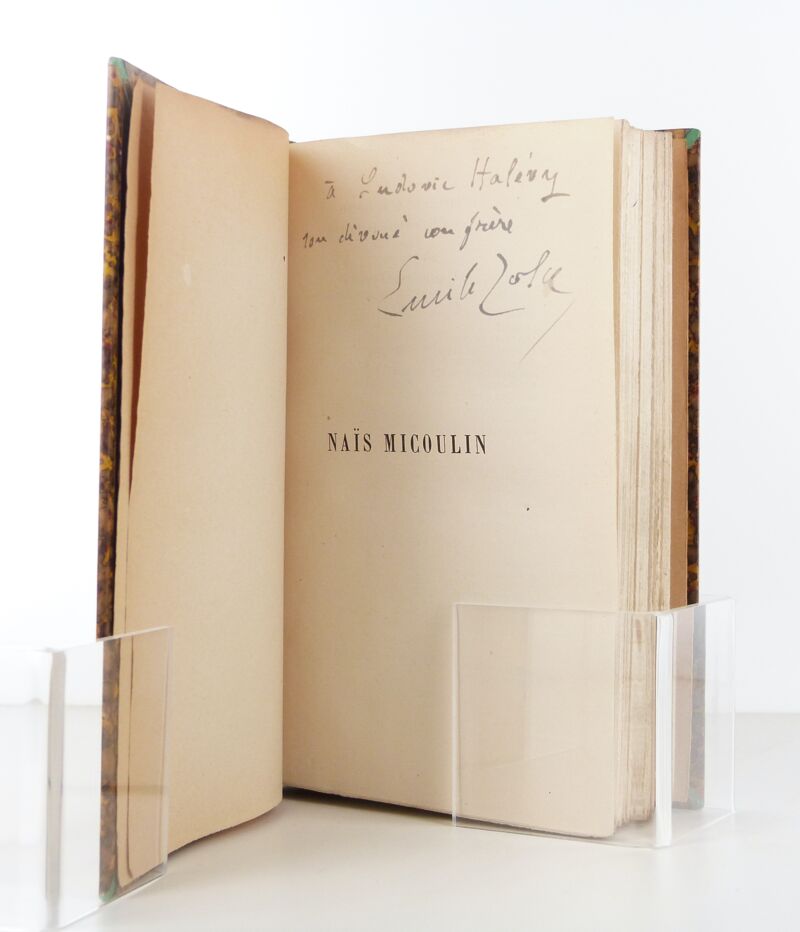 à Ludovic Halévy
son dévoué confrère
Emile Zola
NAÏS MICOULIN